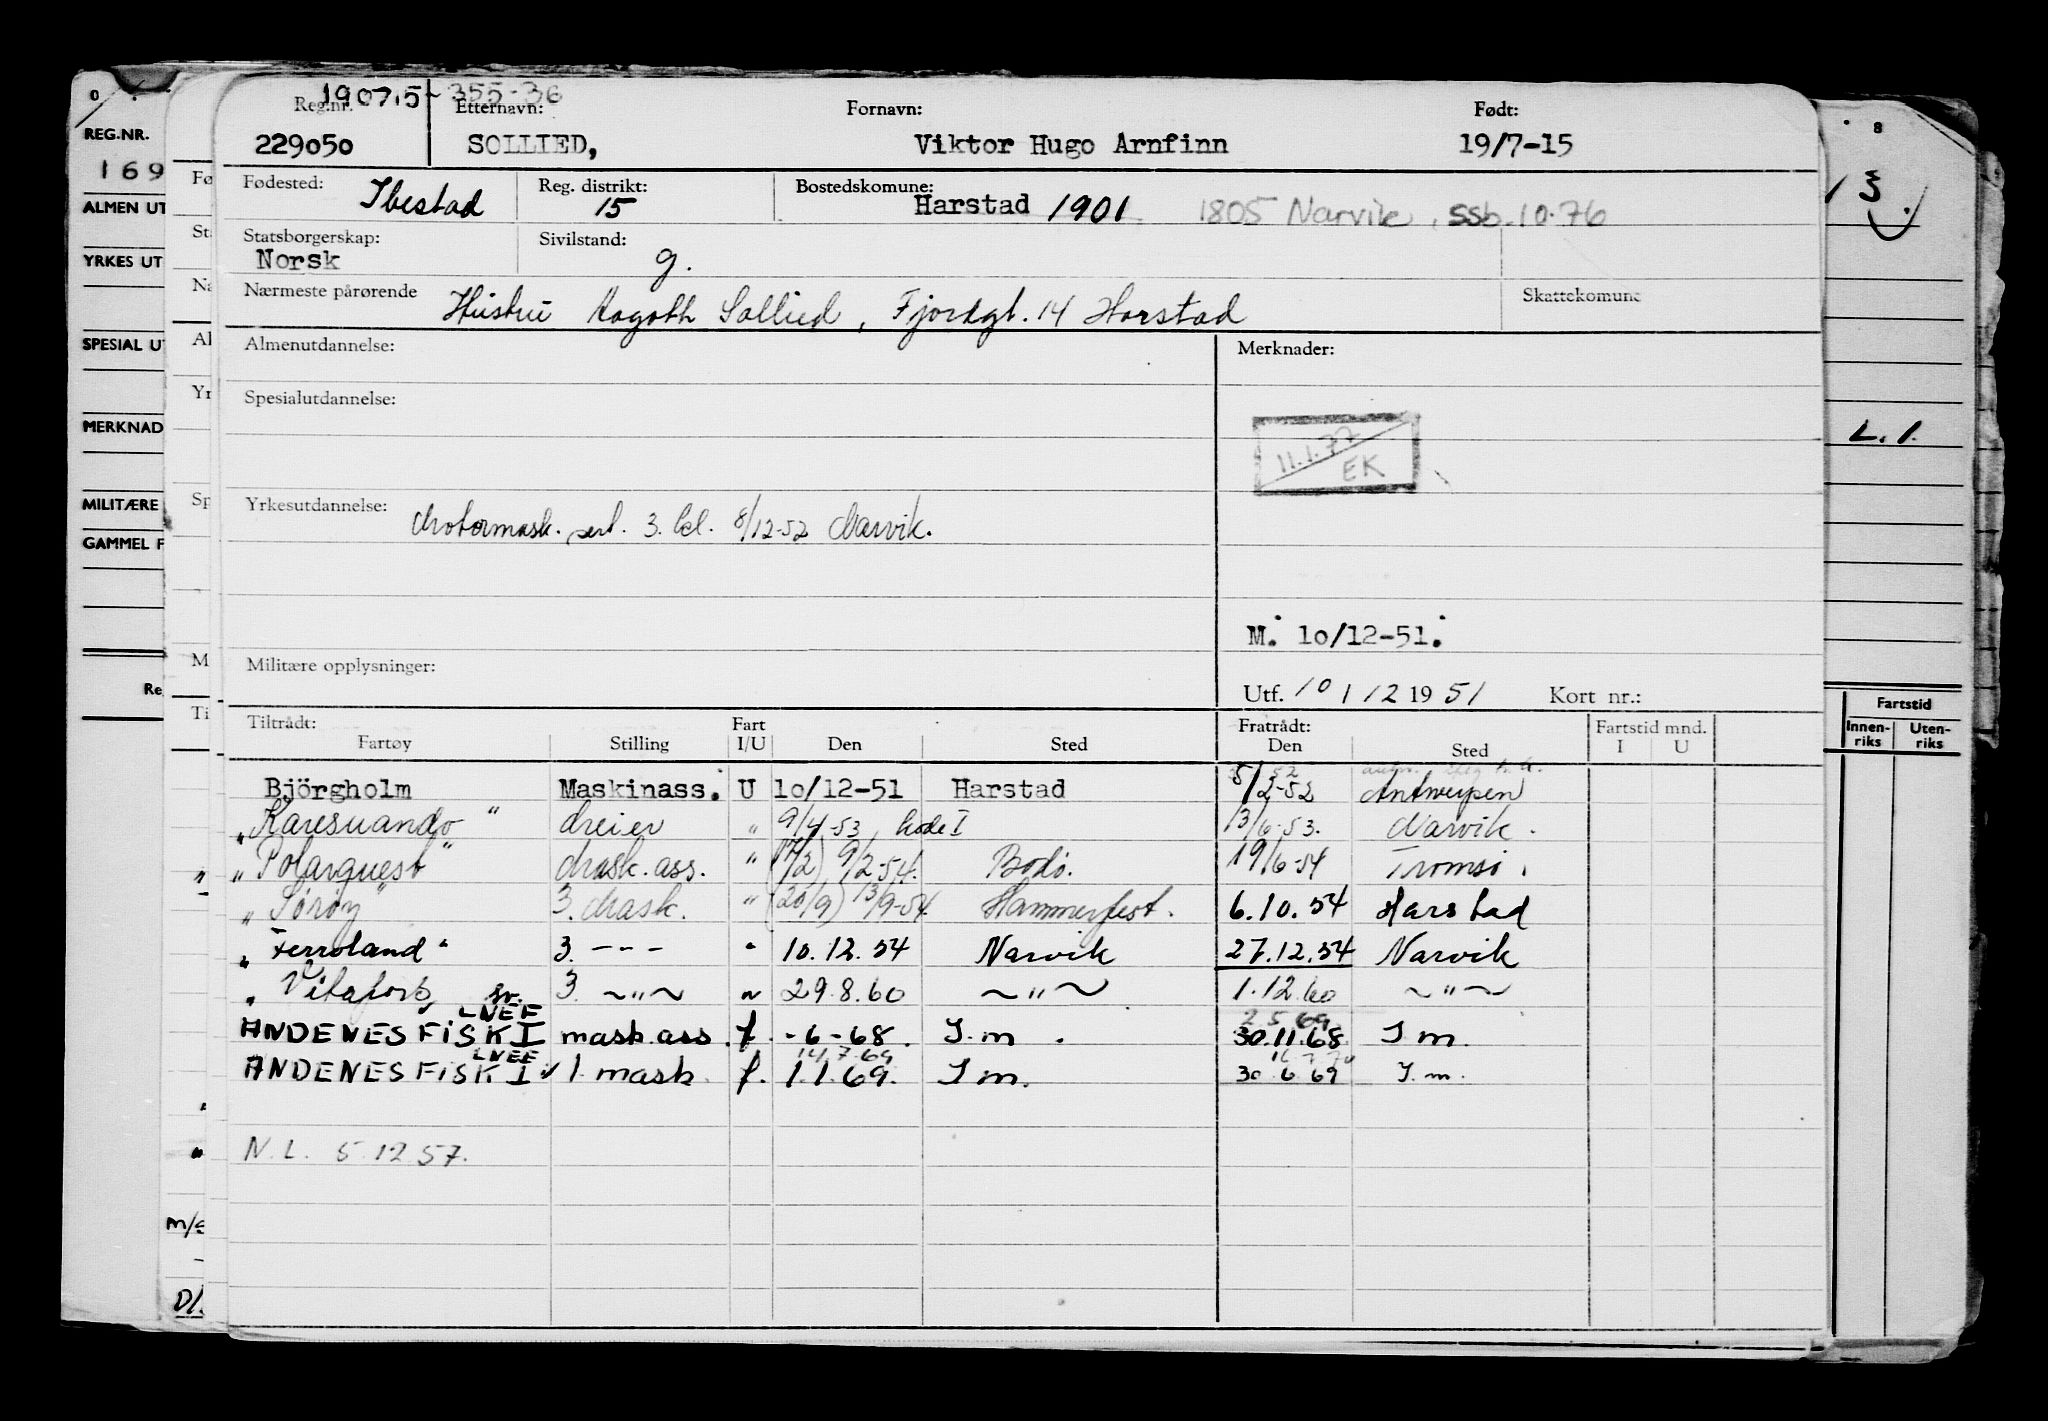 190715-355-36
Reg.nr. Etternavn: Fornavn: Født:
229050 SOLLIED, Viktor Hugo Arnfinn 19/7-15
Fødested: Ibestad Reg. distrikt: 15 Bostedskomune: Harstad 1901 1805 Narvik, ssb. 10.76
Statsborgerskap: Norsk Sivilstand: g.
Nærmeste pårørende Hustru Aagoth Sollied, Fjordgt. 14 Harstad Skattekomune
Almenutdannelse: Merknader:
Spesialutdannelse:
11.1.77
EK
Yrkesutdannelse: Motormask. sert. 3. kl. 8/12-52 Narvik.
M. 10/12-51.
Militære opplysninger:
Utf. 10 / 12 19 51 Kort nr.:
Tiltrådt: Fart Fratrådt: Fartstid mnd.
Fartøy Stilling I/U Den Sted Den Sted I U
Björgholm Maskinass. U 10/12-51 Harstad 5/2-52 Antwerpen
"Karesuando" dreier " 9/4-53 kode I 13/6-53. Narvik.
"Polarquest" Mask. ass. " (17/2) 9/2-54. Bodø. 19/6-54 Tromsø.
"Sørøy" 3. Mask. " (20/9) 13/9-54. Hammerfest. 6.10.54 Harstad
"Ferroland" 3. --- " 10.12.54 Narvik 27.12.54 Narvik
" 3 ~"~ " 29.8.60 ~"~ 1.12.60 ~"~
LNEF 2 5 69
ANDENESFISK I mask ass. f. -6-68. I.m. 30.11.68 I m.
LNEE 14.7.69 16 7 70
ANDENESFISK I 1. mask. f. 1.1.69. I m. 30.6.69 I.m.
N.L. 5.12.57.
REG.NR.
169
ALMEN UT
YRKES UT
SPESIAL UT
MERKNAD
MILITÆRE
GAMMEL F
Re
Fø
St
Na
Al
Yr
Sp
M
Ti
m/s
D/.
8
13.
L.1.
Fartstid
Innen-riks Uten-riks